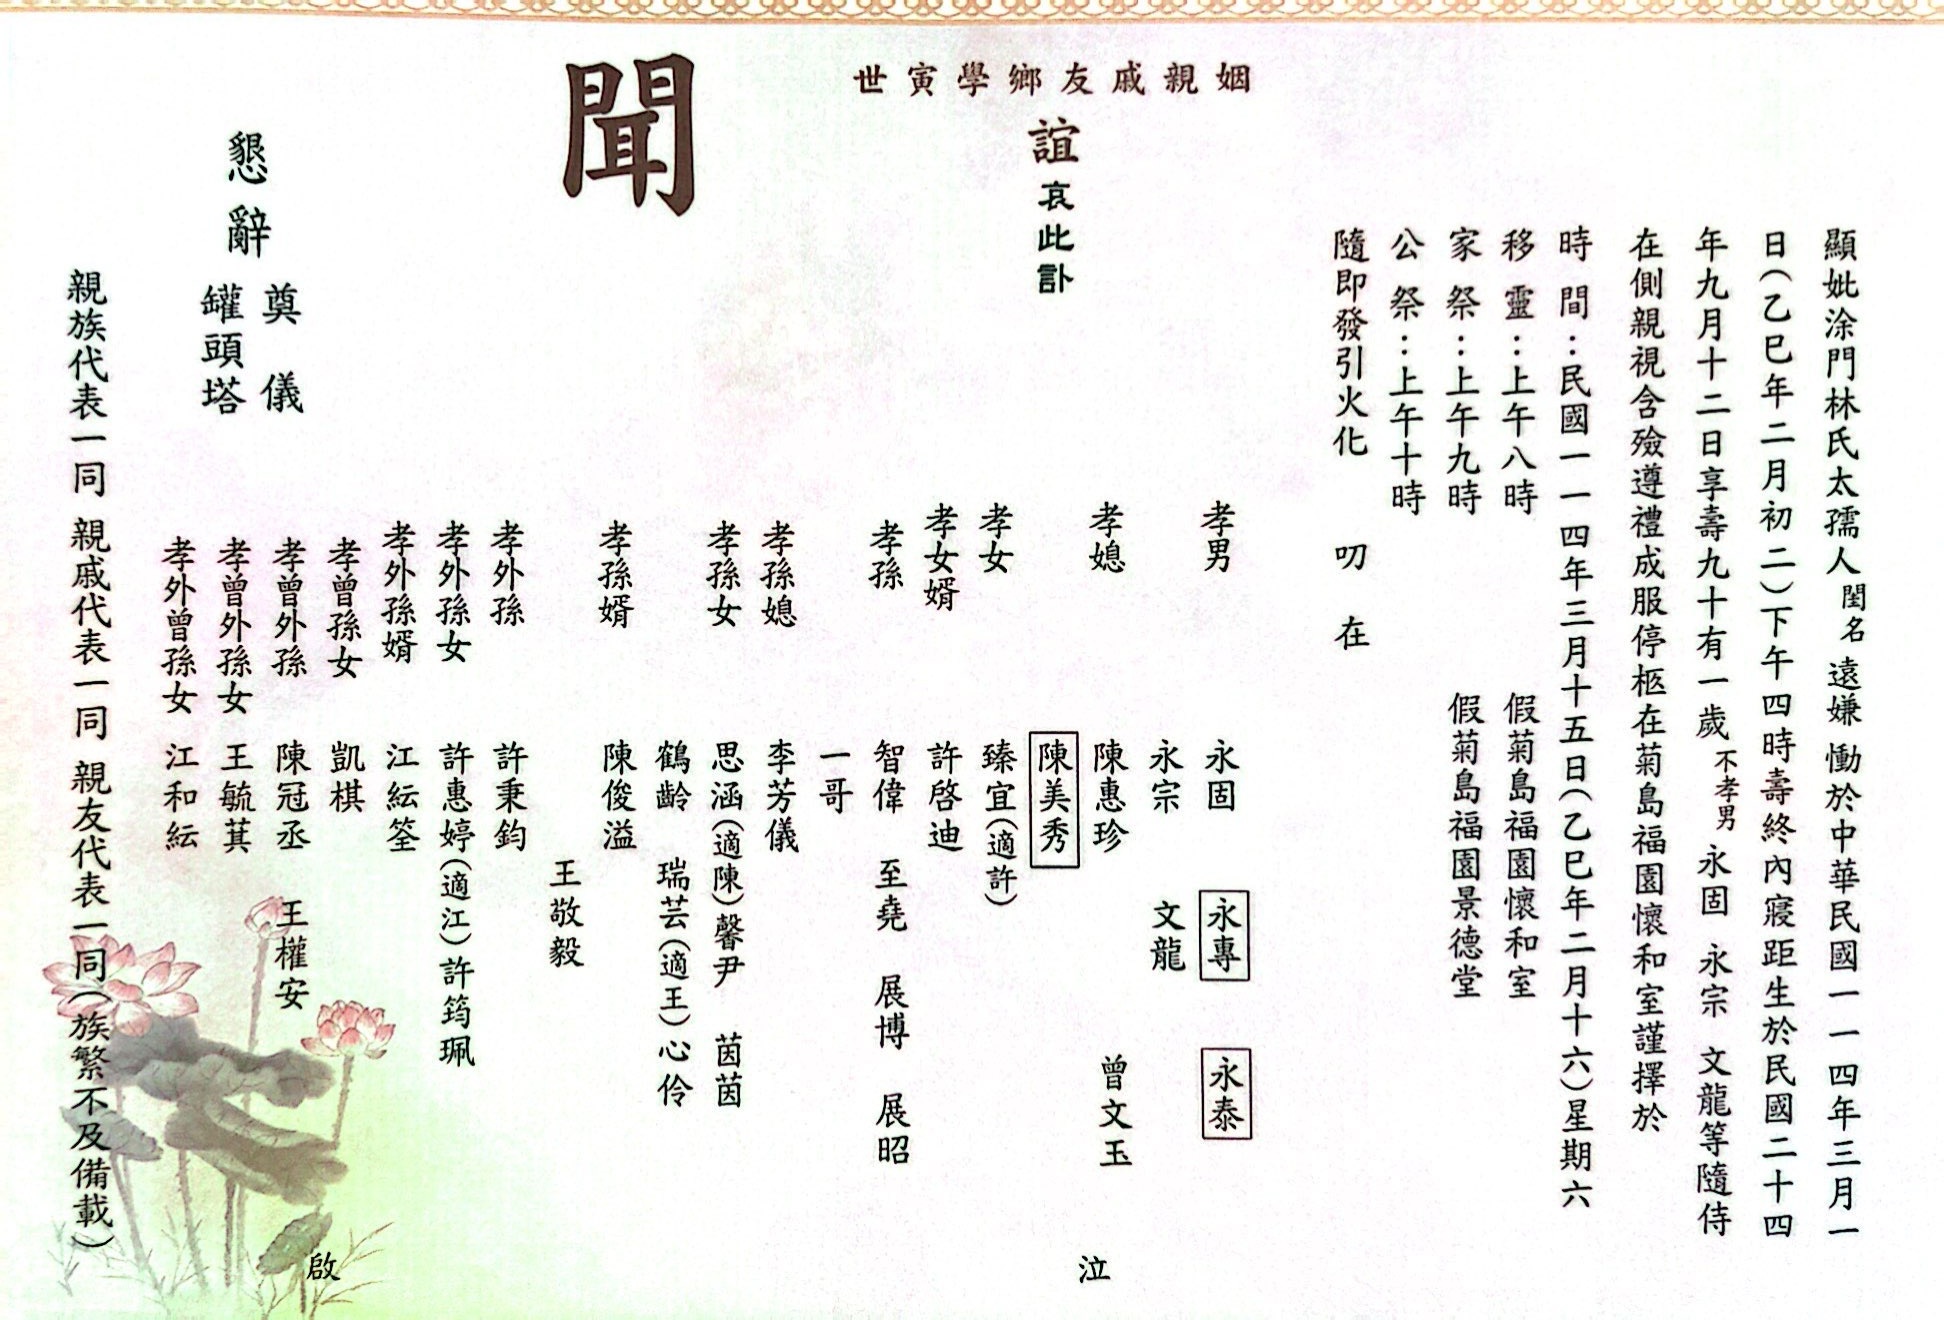 顯妣涂門林氏太孺人閨名遠嫌慟於中華民國一一四年三月一
日(乙巳年二月初二)下午四時壽終內寢距生於民國二十四
年九月十二日享壽九十有一歲不孝男永固 永宗 文龍等隨侍
在側親視含殮遵禮成服停柩在菊島福園懷和室謹擇於
時間:民國一一四年三月十五日(乙巳年二月十六)星期六
移靈:上午八時 假菊島福園懷和室
家祭:上午九時 假菊島福園景德堂
公祭:上午十時
隨即發引火化 叨 在
姻親戚友鄉學寅世
誼哀此訃
聞
孝男 永固 永專 永泰
永宗 文龍
孝媳 陳惠珍 曾文玉
陳美秀
孝女 臻宜(適許)
孝女婿 許啓迪
孝孫 智偉 至堯 展博 展昭
一哥
孝孫媳 李芳儀
孝孫女 思涵(適陳) 馨尹 茵茵
鶴齡 瑞芸(適王) 心伶
孝孫婿 陳俊溢
王敬毅
孝外孫 許秉鈞
孝外孫女 許惠婷(適江) 許筠珮
孝外孫婿 江紜筌
孝曾孫女 凱棋
孝曾外孫 陳冠丞 王權安
孝曾外孫女 王毓萁
孝外曾孫女 江和紜
泣
啟
懇辭 奠儀
罐頭塔
親族代表一同 親戚代表一同 親友代表一同(族繁不及備載)